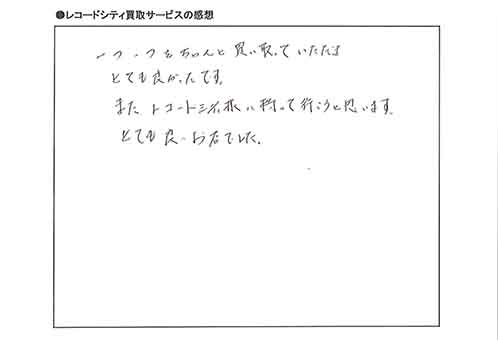 ●レコードシティ買取サービスの感想
一つ一つをちゃんと買い取っていただき
とても良かったです。
また レコードシティ様に持って行こうと思います。
とても良いお店でした。